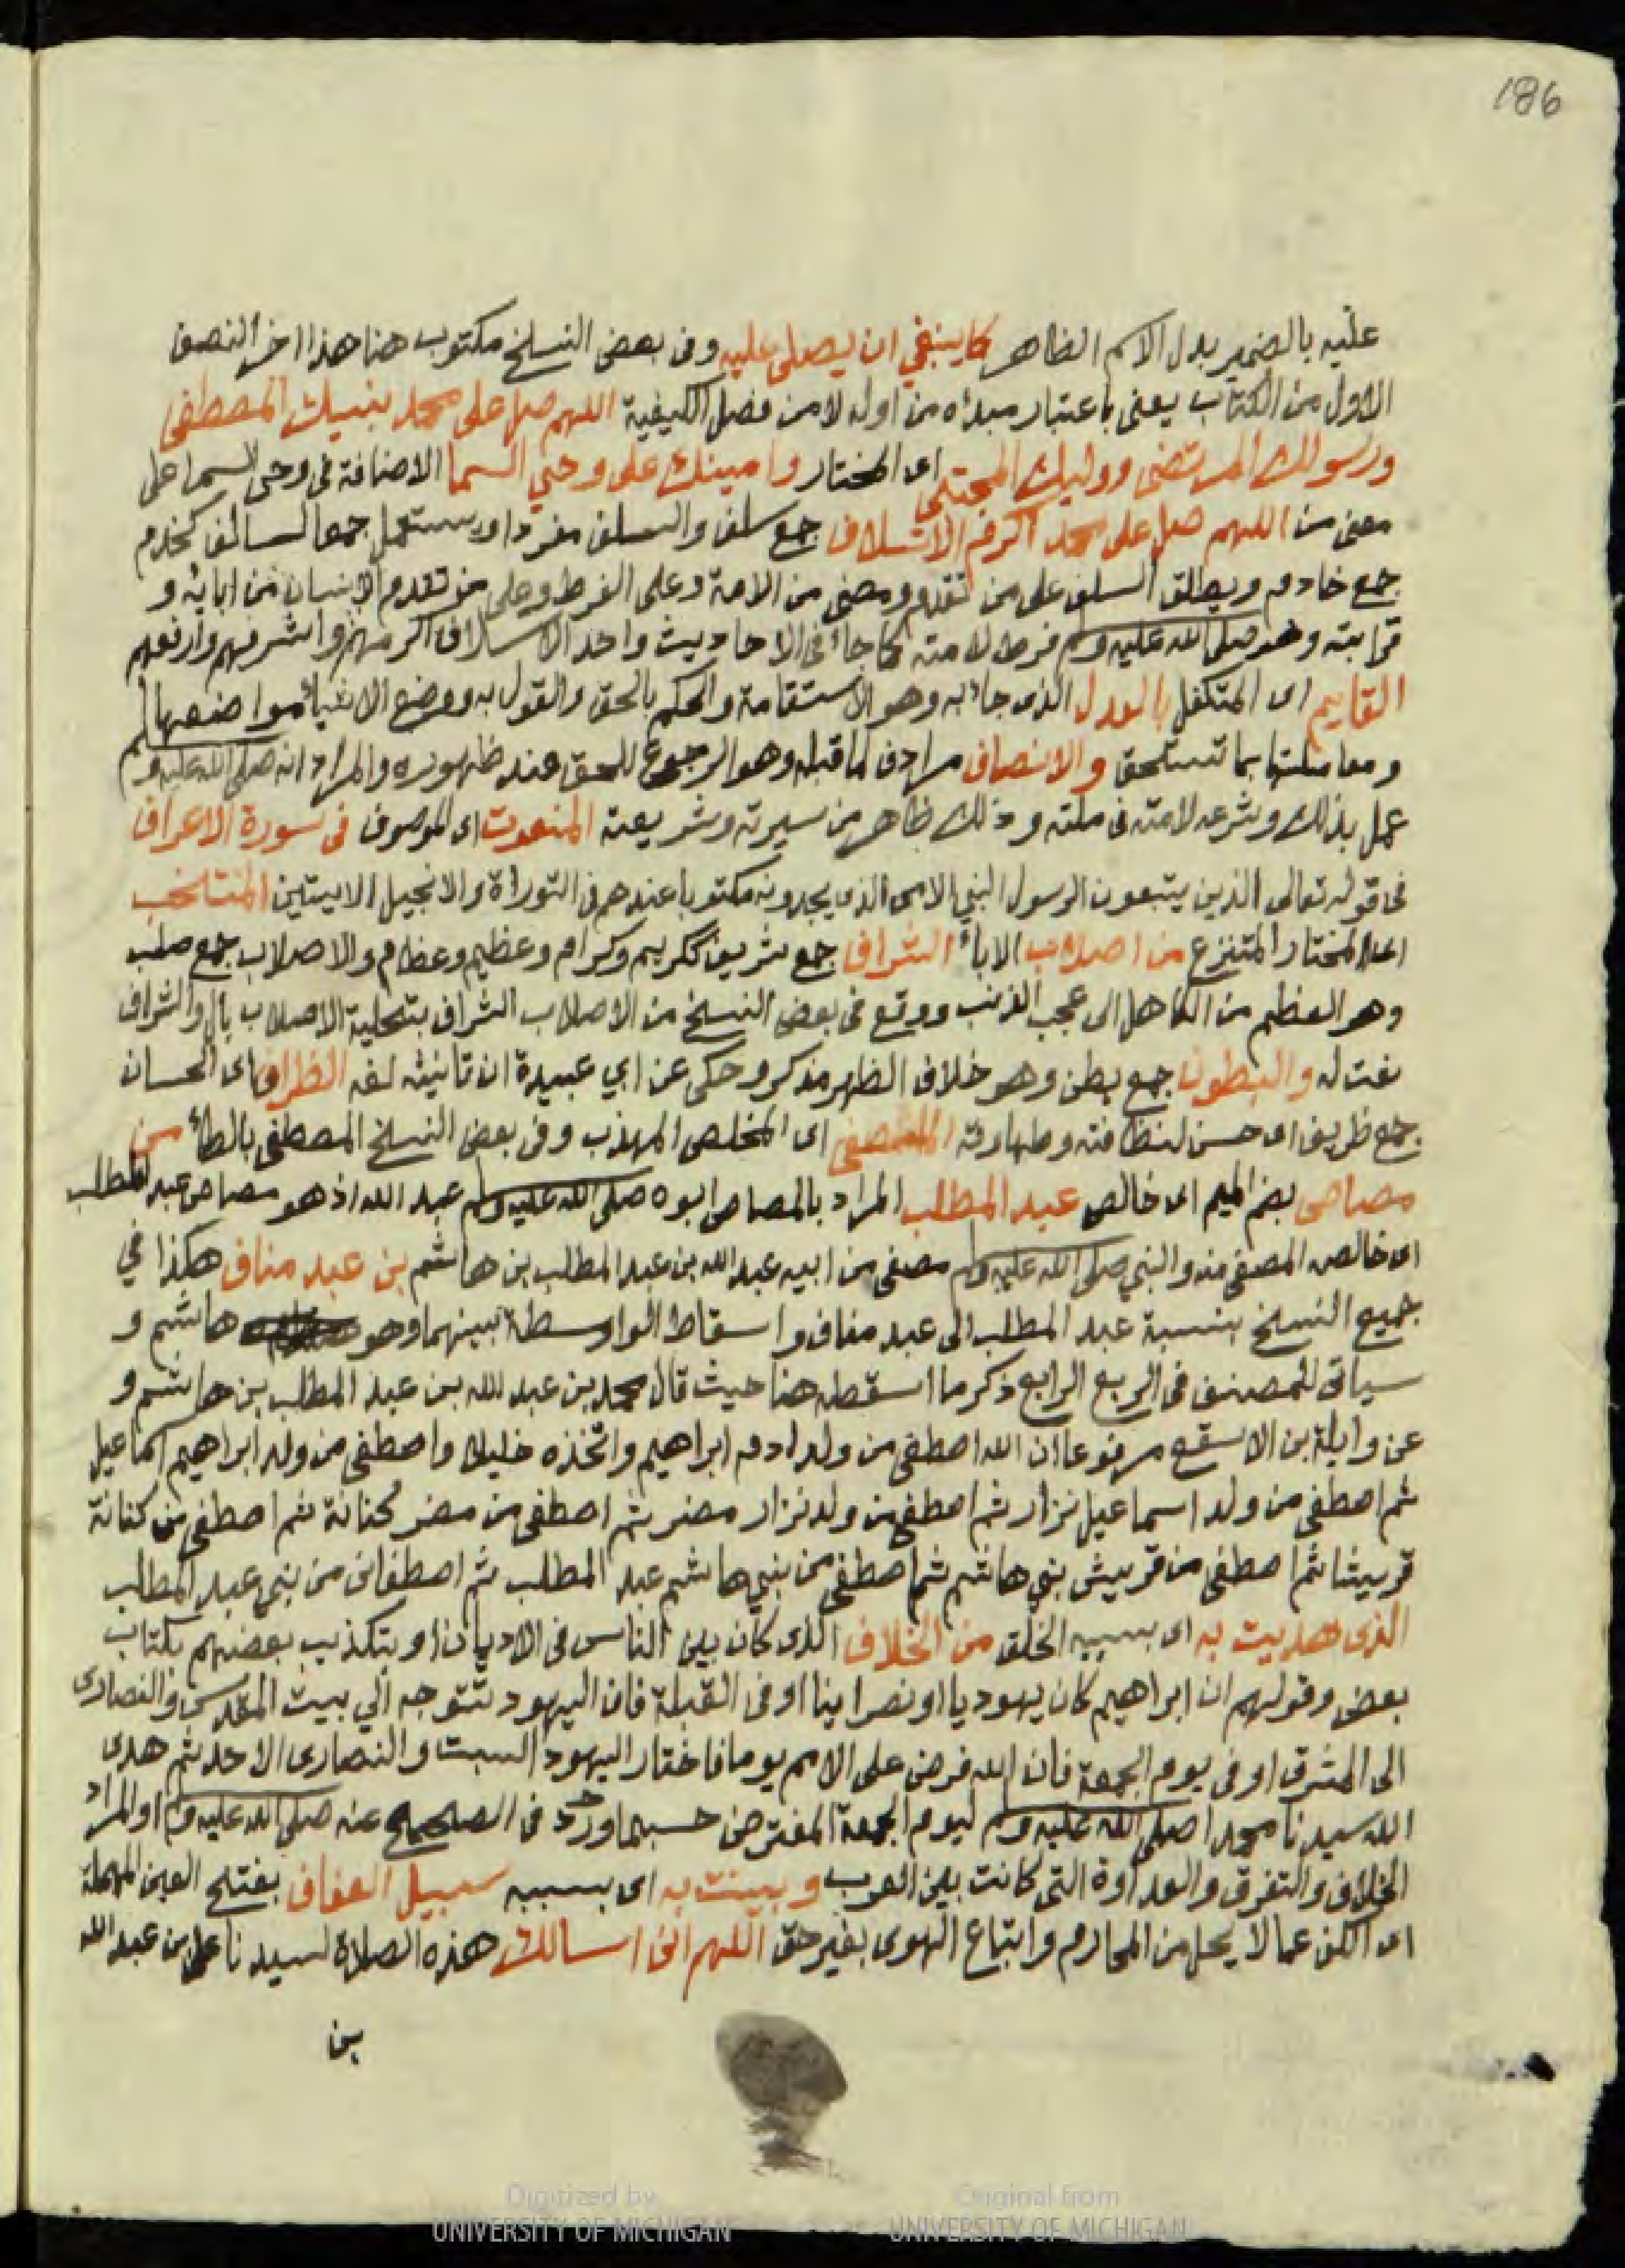 186
عليه بالضمير بدل الاسم الظاهر كما ينبغي ان يصلى عليه وفى بعض النسخ مكتوب هنا هذا اخر النصف
الاول من الكتاب يعنى باعتبار مبدأه من اوله لا من فصل الكيفية اللهم صل على محمد نبيك المصطفى
ورسولك المرتضى ووليك المجتبى اى المختار وامينك على وحي السما الاضافة فى وحى السما على
معنى من اللهم صل على محمد اكرم الاسلاف جمع سلف والسلف مفردا ويستعمل جمعا لسالف كخدم
جمع خادم ويطلق السلف على من تقدم ومضى من الامة وعلى الفرط وعلى من تقدم الانسان من ابايه و
قرابته وهو صلى الله عليه وسلم فرط لامته كما جاء فى الاحاديث واحد الاسلاف اكرمهم واشرفهم وارفعهم
القايم اى المتكفل بالعدل الذى جاء به وهو الاستقامة والحكم بالحق والقول به ووضع الاشياء مواضعها
ومعاملتها بما تستحق والانصاف مرادف لما قبله وهو الرجوع للحق عند ظهوره والمراد انه صلى الله عليه وسلم
عمل بذلك وشرعه لامته فى ملته وذلك ظاهر من سيرته وشريعته المنعوت اى الموصوف فى سورة الاعراف
فى قوله تعالى الذين يتبعون الرسول النبي الامى الذى يجدونه مكتوبا عندهم فى التوراة والانجيل الايتين المنتخب
اى المختار المنتزع من اصلاب الاباء الشراف جمع شريف ككريم وكرام وعظيم وعظام والاصلاب جمع صلب
وهو العظم من الكاهل الى عجب الذنب ووقع فى بعض النسخ من الاصلاب الشراف بتحلية الاصلاب بال والشراف
نعت له والبطون جمع بطن وهو خلاف الظهر مذكر وحكى عن ابي عبيدة ان تانيثه لغه الظراف اى الحسان
جمع ظريف اى حسن لنظافته وطهارته المصفى اى المخلص المهذب وفى بعض النسخ المصطفى بالطاء من
مصاص بضم الميم اى خالص عبد المطلب المراد بالمصاص ابوه صلى الله عليه وسلم عبد الله اذ هو مصاص عبد المطلب
اى خالصه المصفى منه والنبي صلى الله عليه وسلم مصفى من ابيه عبد الله بن عبد المطلب بن هاشم بن عبد مناف هكذا في
جميع النسخ بنسبة عبد المطلب الى عبد مناف واسقاط الواسطة بينهما وهو هاشم و
سياتى للمصنف فى الربع الرابع ذكر ما اسقطه هنا حيث قال محمد بن عبد الله بن عبد المطلب بن هاشم و
عن وايلة بن الاسقع مرفوعا ان الله اصطفى من ولد ادم ابراهيم واتخذه خليلا واصطفى من ولد ابراهيم اسماعيل
ثم اصطفى من ولد اسماعيل نزار ثم اصطفى من ولد نزار مضر ثم اصطفى من مضر كنانة ثم اصطفى من كنانة
قريشا ثم اصطفى من قريش بني هاشم ثم اصطفى من بني هاشم عبد المطلب ثم اصطفانى من بني عبد المطلب
الذى هديت به اى بسببه الخلق من الخلاف الذى كان بين الناس فى الاديان او بتكذيب بعضهم بكتاب
بعض وقولهم ان ابراهيم كان يهوديا او نصرانيا او فى القبلة فان اليهود تتوجه الي بيت المقدس والنصارى
الى المشرق او فى يوم الجمعة فان الله فرض على الامم يوما فاختار اليهود السبت والنصارى الاحد ثم هدى
الله سيدنا محمدا صلى الله عليه وسلم ليوم الجمعة المفترض حسبما ورد فى الصحيح عنه صلى الله عليه وسلم او المراد
الخلاف والتفرق والعداوة التى كانت بين العرب وبينت به اى بسببه سبيل العفاف بفتح العين المهملة
اى الكف عما لا يحل من المحارم واتباع الهوى بغير حق اللهم انى اسالك هذه الصلاة لسيدنا على بن عبد الله
بن
Digitized by
UNIVERSITY OF MICHIGAN
Original from
UNIVERSITY OF MICHIGAN